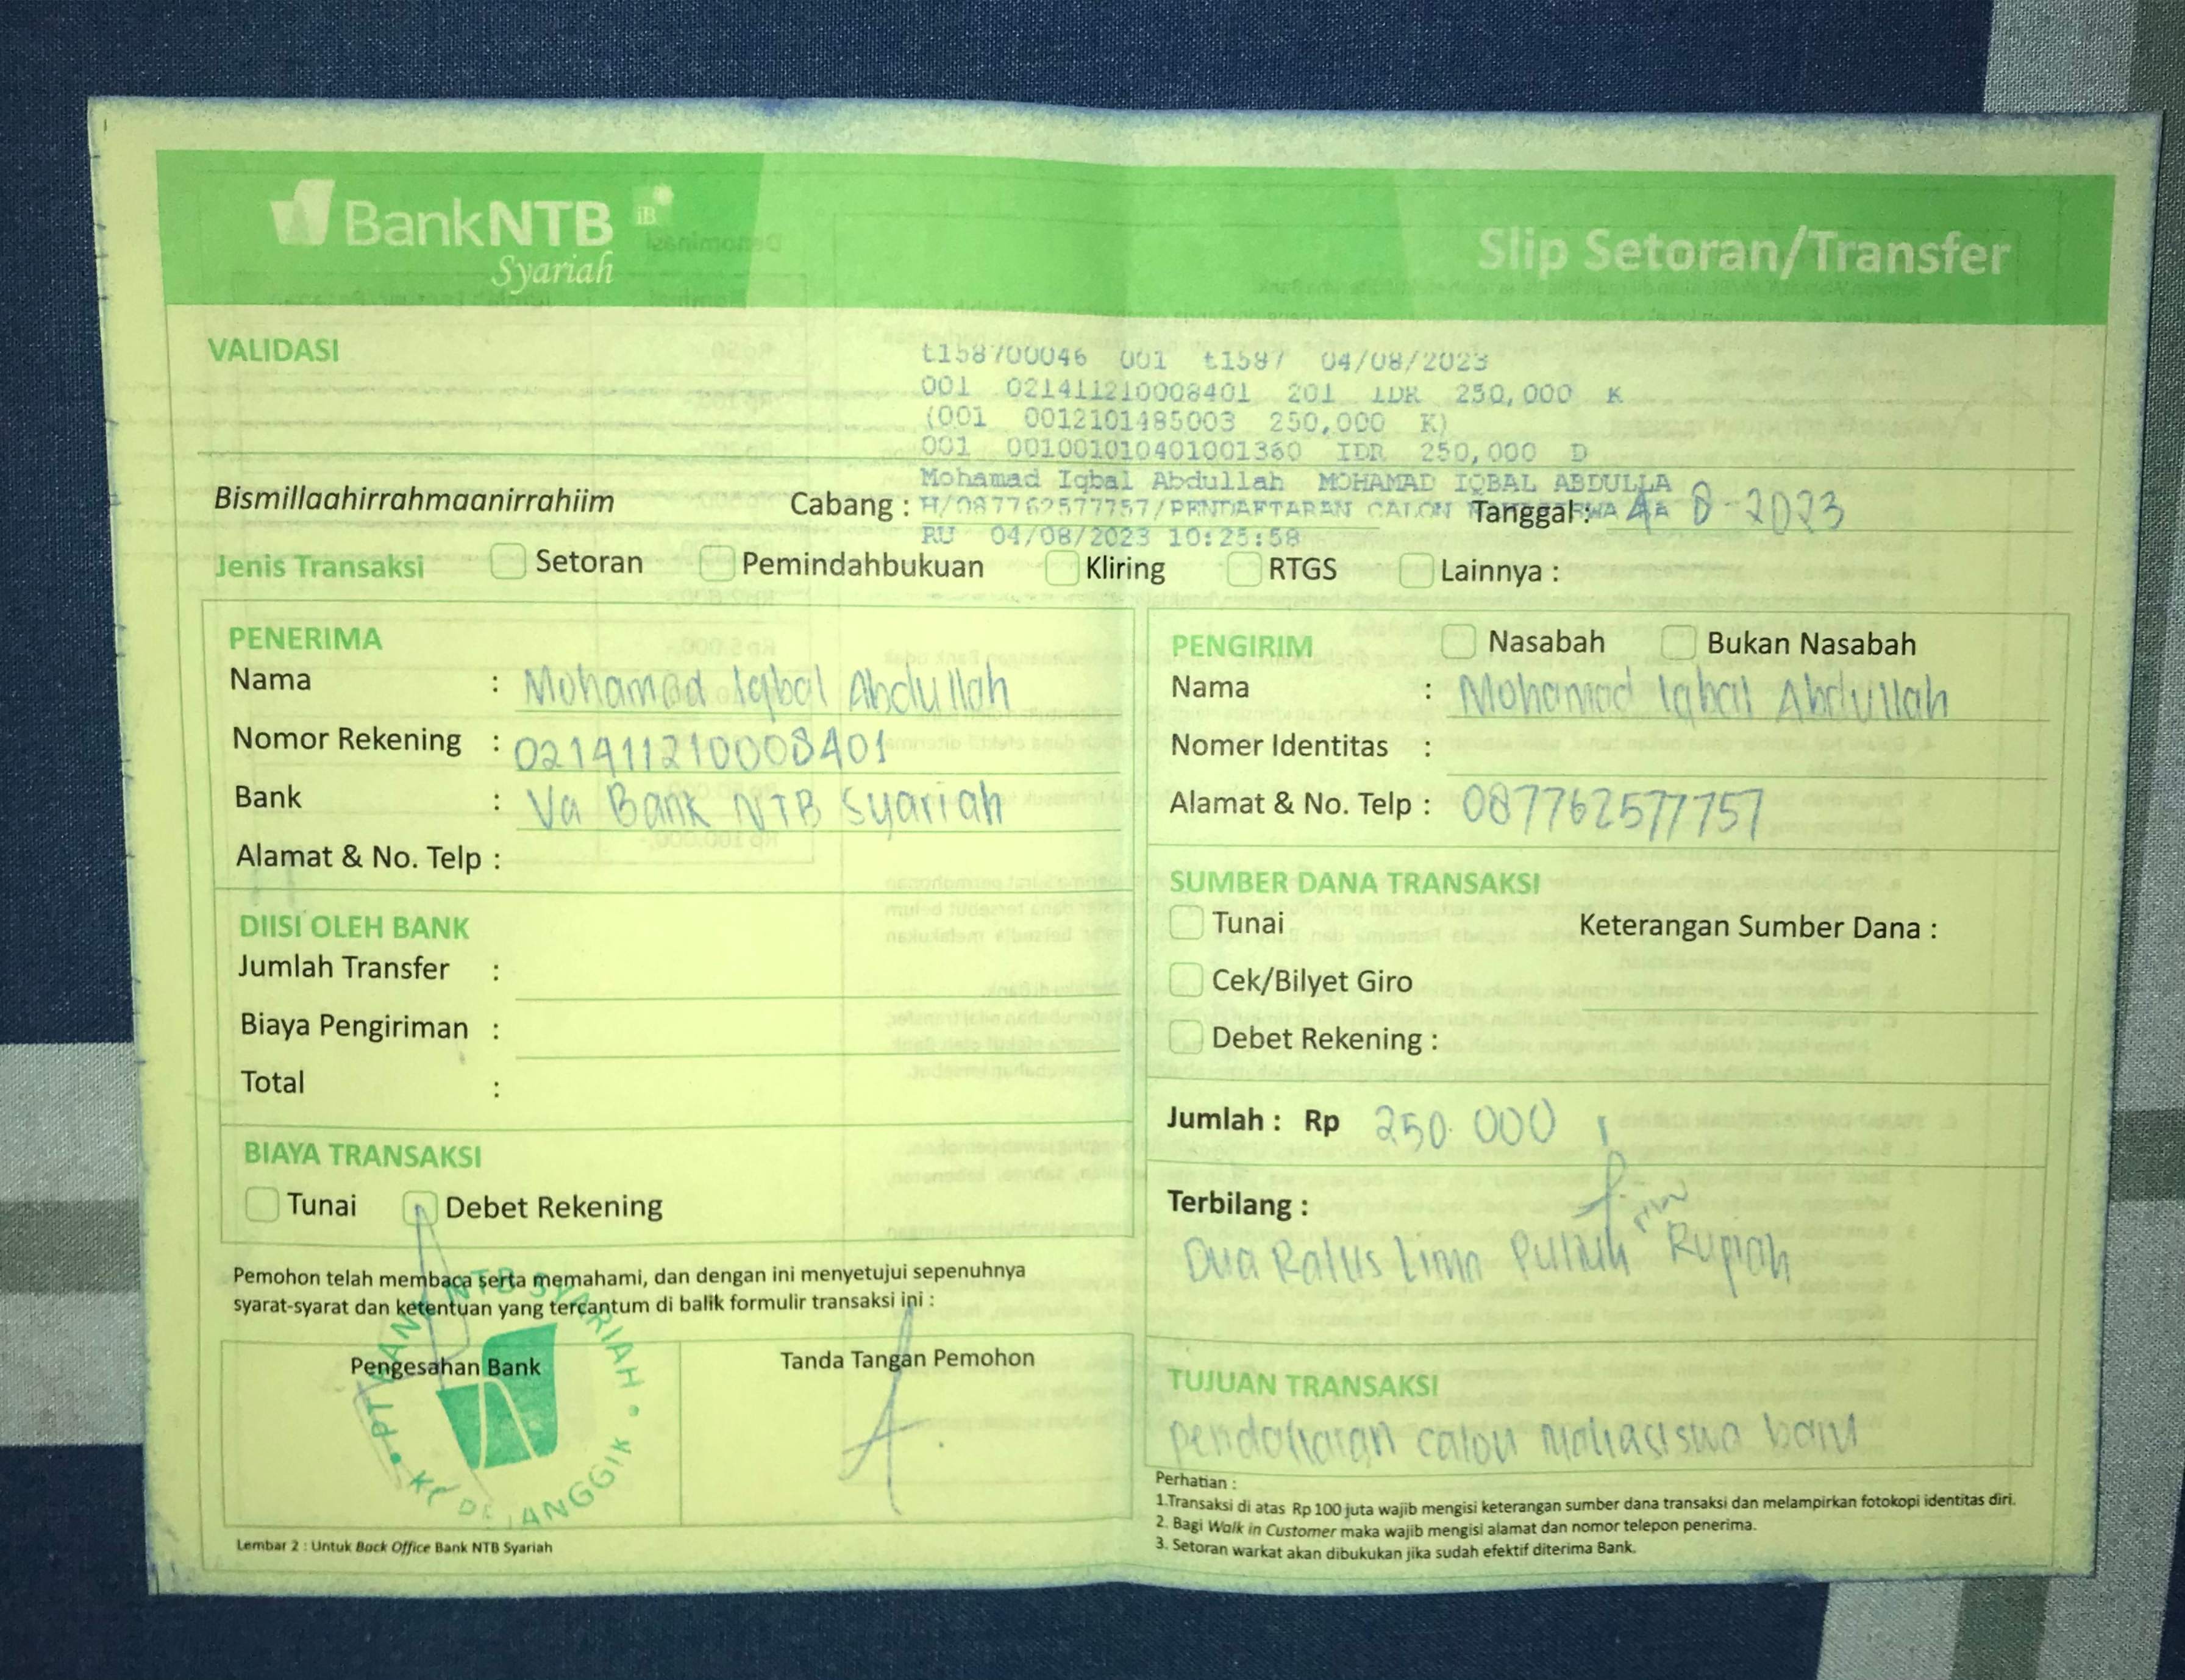 BankNTB iB
Syariah
Slip Setoran/Transfer
VALIDASI
t158700046 001 t1587 04/08/2023
001 021411210008401 201 IDR 250,000 K
(001 0012101485003 250,000 K)
001 001001010401001360 IDR 250,000 D
Mohamad Iqbal Abdullah MOHAMAD IQBAL ABDULLA
H/087762577757/PENDAFTARAN CALON
RU 04/08/2023 10:25:58
Bismillaahirrahmaanirrahiim
Cabang :
Tanggal : 4 8-2023
Jenis Transaksi Setoran Pemindahbukuan Kliring RTGS Lainnya :
PENERIMA
Nama : Mohamad Iqbal Abdullah
Nomor Rekening : 021411210008401
Bank : Va Bank NTB Syariah
Alamat & No. Telp :
DIISI OLEH BANK
Jumlah Transfer :
Biaya Pengiriman :
Total :
BIAYA TRANSAKSI
Tunai Debet Rekening
Pemohon telah membaca serta memahami, dan dengan ini menyetujui sepenuhnya
syarat-syarat dan ketentuan yang tercantum di balik formulir transaksi ini :
Pengesahan Bank
Tanda Tangan Pemohon
NTB SYARIAH
Lembar 2 : Untuk Back Office Bank NTB Syariah
PENGIRIM Nasabah Bukan Nasabah
Nama : Mohamad Iqbal Abdullah
Nomer Identitas :
Alamat & No. Telp : 087762577757
SUMBER DANA TRANSAKSI
Tunai Keterangan Sumber Dana :
Cek/Bilyet Giro
Debet Rekening :
Jumlah : Rp 250.000
Terbilang :
Dua Ratus Lima Puluh Rupiah
TUJUAN TRANSAKSI
pendaftaran calon mahasiswa baru
Perhatian :
1.Transaksi di atas Rp 100 juta wajib mengisi keterangan sumber dana transaksi dan melampirkan fotokopi identitas diri.
2. Bagi Walk in Customer maka wajib mengisi alamat dan nomor telepon penerima.
3. Setoran warkat akan dibukukan jika sudah efektif diterima Bank.